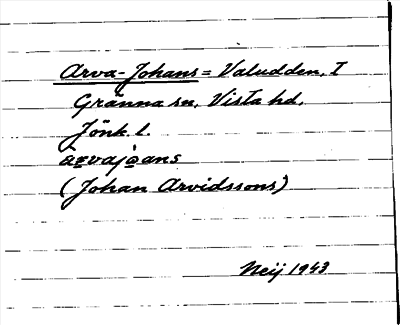 Arva-Johans = Valudden, I
Gränna sn, Vista hd,
Jönk. l.
àrvajo̲ans
(Johan Arvidssons)
Neij 1943